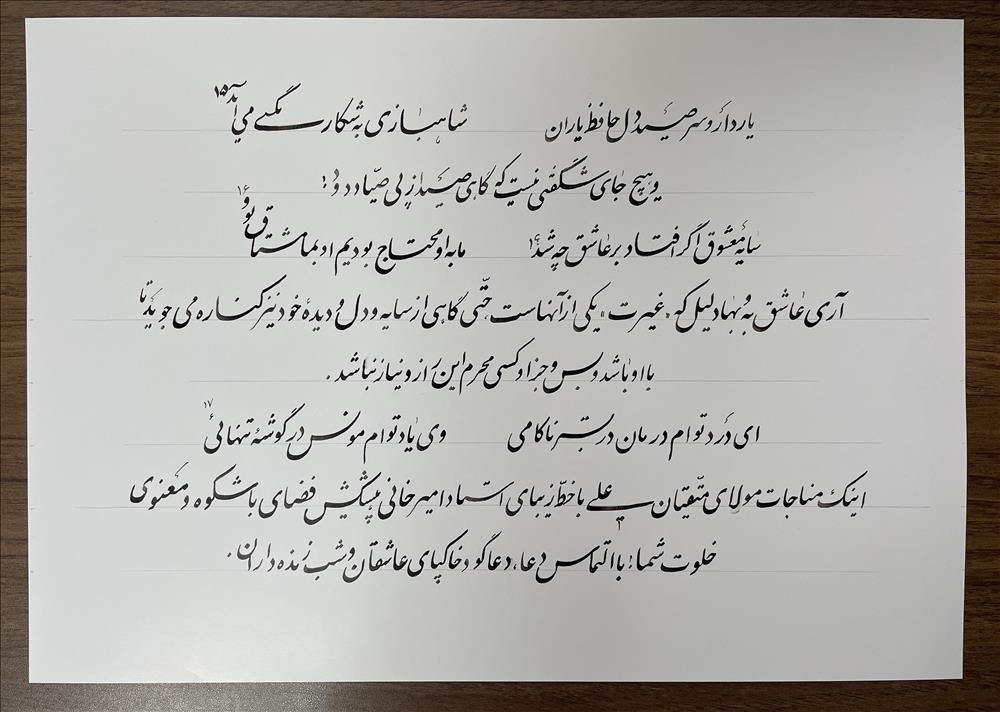 یار دارد سر صید دل حافظ یاران شاهبازی به شکار مگسی می‌آید ۱۵
و هیچ جای شگفتی نیست که گاهی صید از پی صیاد دود:
سایه معشوق اگر افتاد بر عاشق چه شد ما به او محتاج بودیم او بما مشتاق بود ۱۶
آری عاشق به دلیل که «غیرت» یکی از آنهاست حتّی گاهی از سایه و دل و دیدهٔ خود نیز کناره می‌جوید تا
با او باشد و بس و جز او کسی محرم این راز و نیاز نباشد.
ای درد توام درمان در بستر ناکامی وی یاد توام مونس در گوشهٔ تنهائی ۱۷
اینک مناجات مولای متّقیان علی با خطّ زیبای استاد امیرخانی پیشکش فضای باشکوه و معنوی
خلوت شما؛ با التماس دعا، دعاگو و خاکپای عاشقان و شب زنده‌داران.